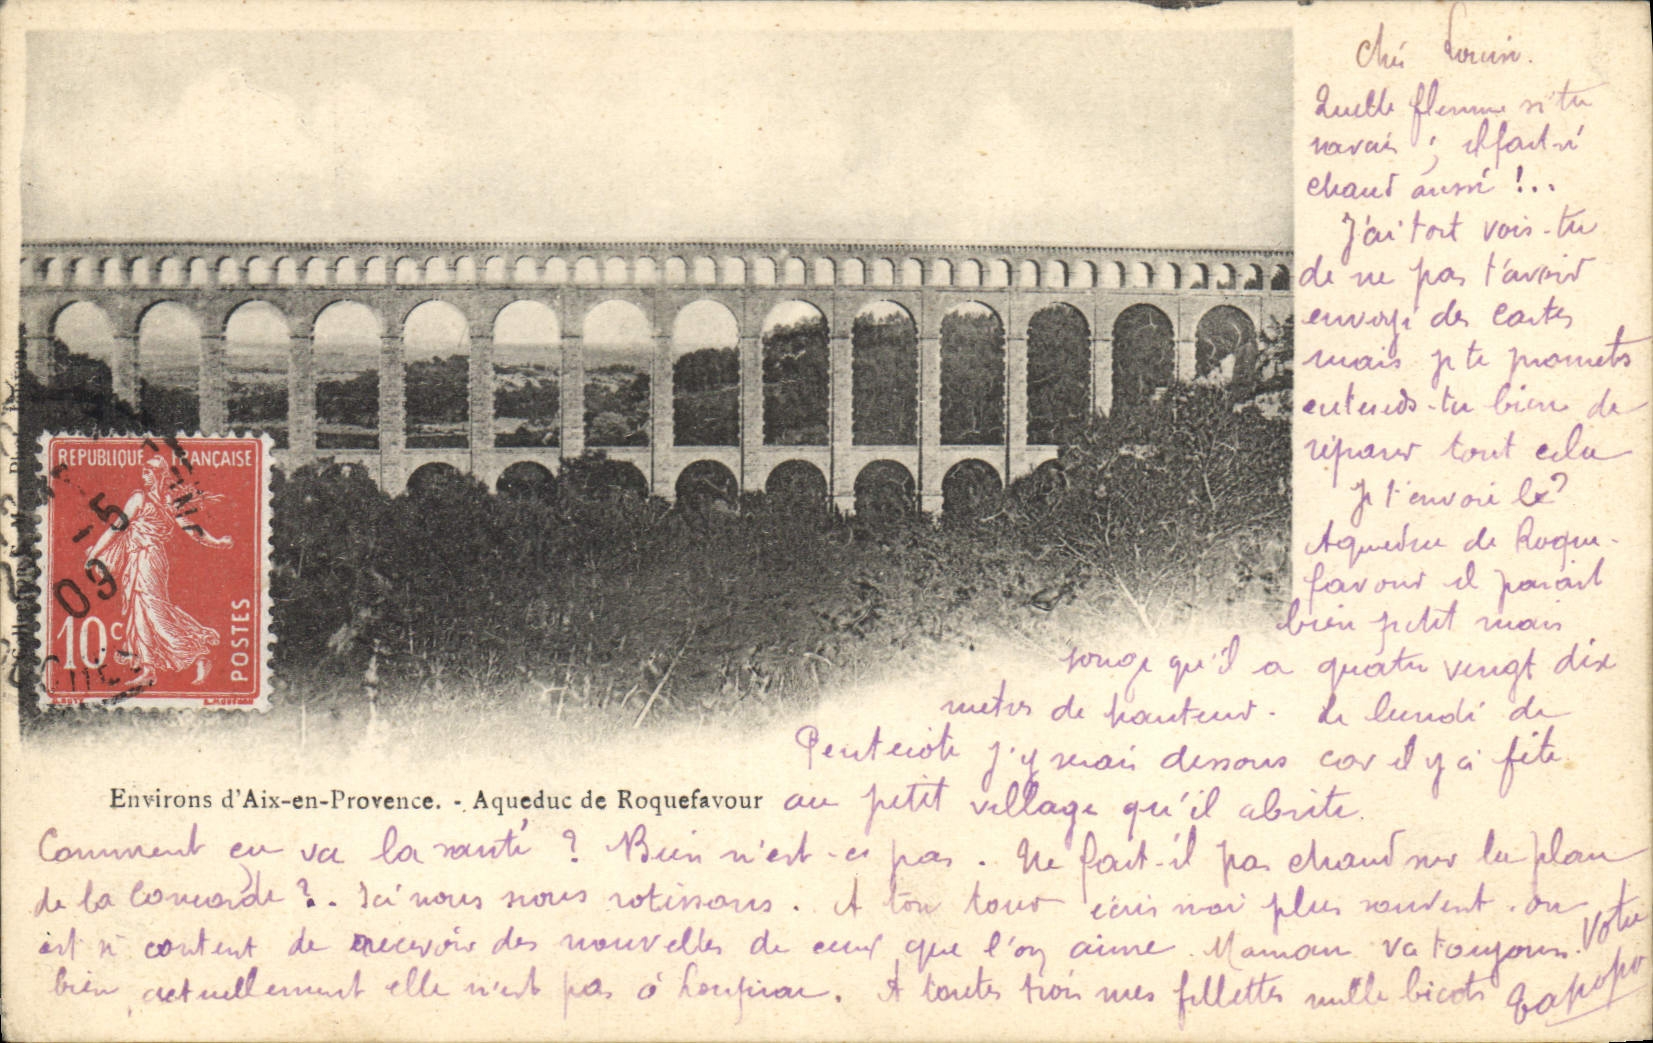 Quelle flemme si tu
savais ; il fait si
chaud aussi !..
J'ai tort vois-tu
de ne pas t'avoir
envoyé des cartes
mais je te promets
entends-tu bien de
réparer tout cela
Je t'envoie le?
Aqueduc de Roque-
favour il parait
bien petit mais
songe qu'il a quatre vingt dix
metres de hauteur. Le lundi de
Pentecôte j'y serai dessous car il y a fête
au petit village qu'il abrite.
Environs d'Aix-en-Provence. - Aqueduc de Roquefavour
REPUBLIQUE FRANÇAISE
10c
POSTES
-5
09
Comment en va la santé ? Bien n'est-ce pas. Ne fait-il pas chaud sur la place
de la Concorde ?. Ici nous nous rotissons. A ton tour écris moi plus souvent. on
est si content de recevoir des nouvelles de ceux que l'on aime. Maman va toujours
bien, actuellement elle n'est pas à. A toutes trois mes fillettes mille bicots
Votre